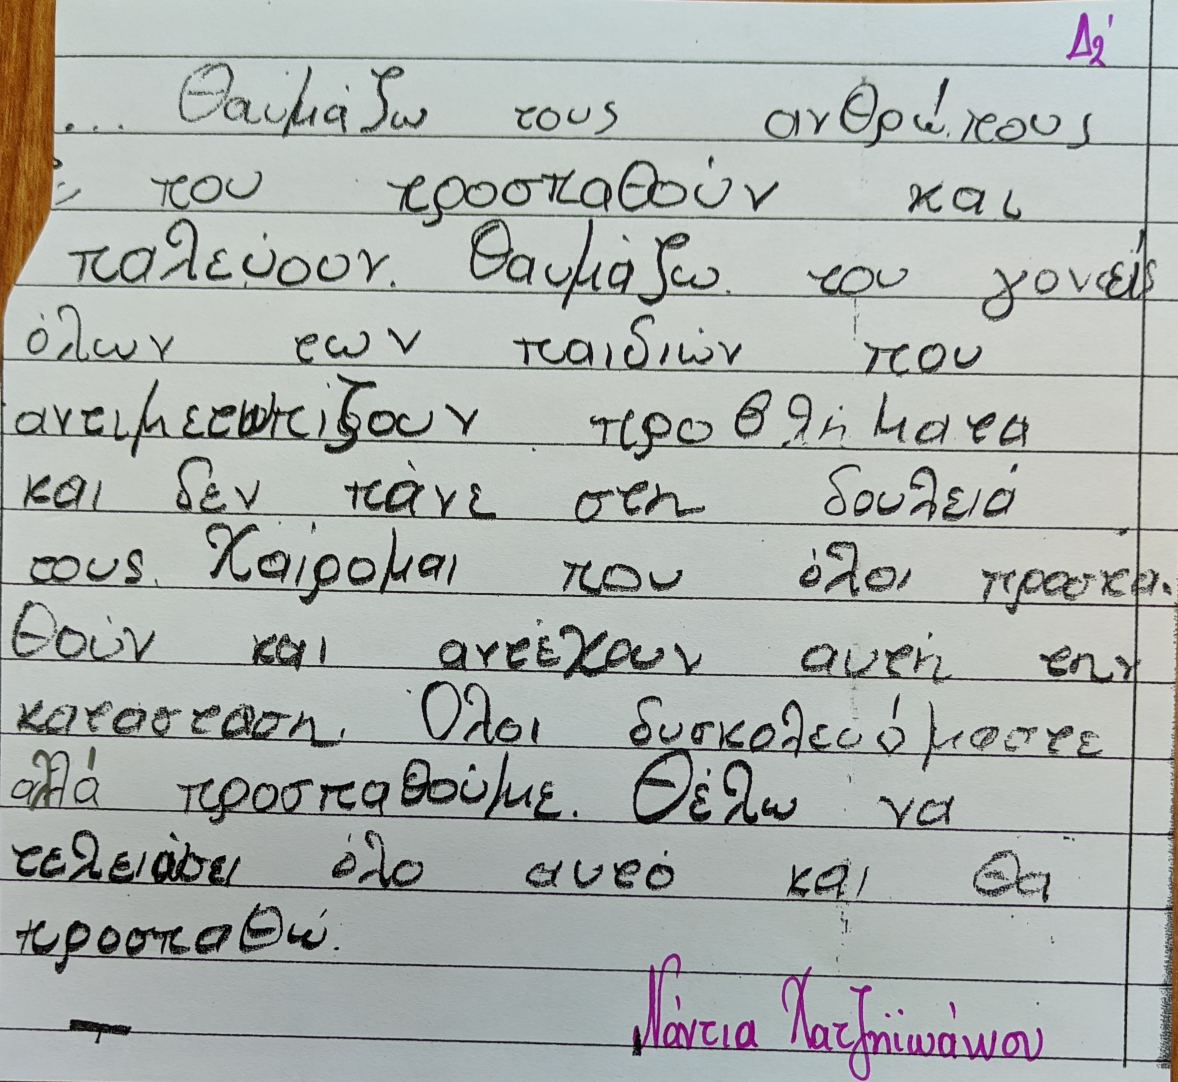 Δ2'
... Θαυμάζω τους ανθρώπους
που προσπαθούν και
παλεύουν. Θαυμάζω του γονείς
όλων των παιδιών που
αντιμετωπίζουν προβλήματα
και δεν πάνε στη δουλειά
τους. Χαίρομαι που όλοι προσπα-
θούν και αντέχουν αυτή την
κατάσταση. Όλοι δυσκολευόμαστε
αλλά προσπαθούμε. Θέλω να
τελειώσει όλο αυτό και θα
προσπαθώ.
Νάντια Χατζηϊωάννου